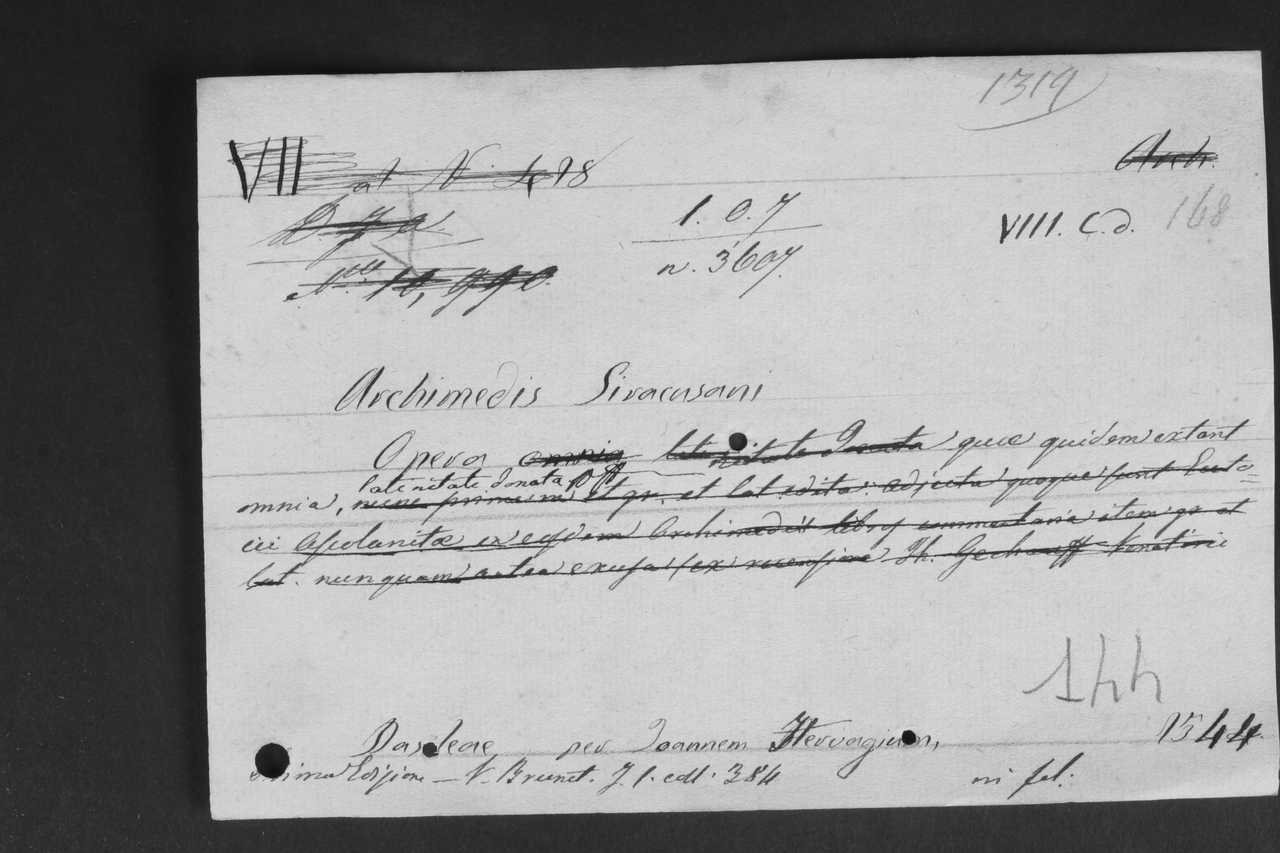 1319
VII at N. 498
Arch.
1. 0. 7
n. 3607.
VIII. C. d. 168
Archimedis Siracusani
Opera omnia latinitate Donata quae quidem extant
latinitate donata
omnia, nunc primum et gr. et lat. edita: adjecta quoque sunt Euto=
cii Ascalonitae in eosdem Archimedis libros commentaria item gr. et
lat. nunquam antea excusa (ex recensione Th. Gechauff Venatorii
144
Basileae per Joannem Hervagium, 1544.
Prima Edizione - V. Brunet. T. 1. coll. 384 in fol.